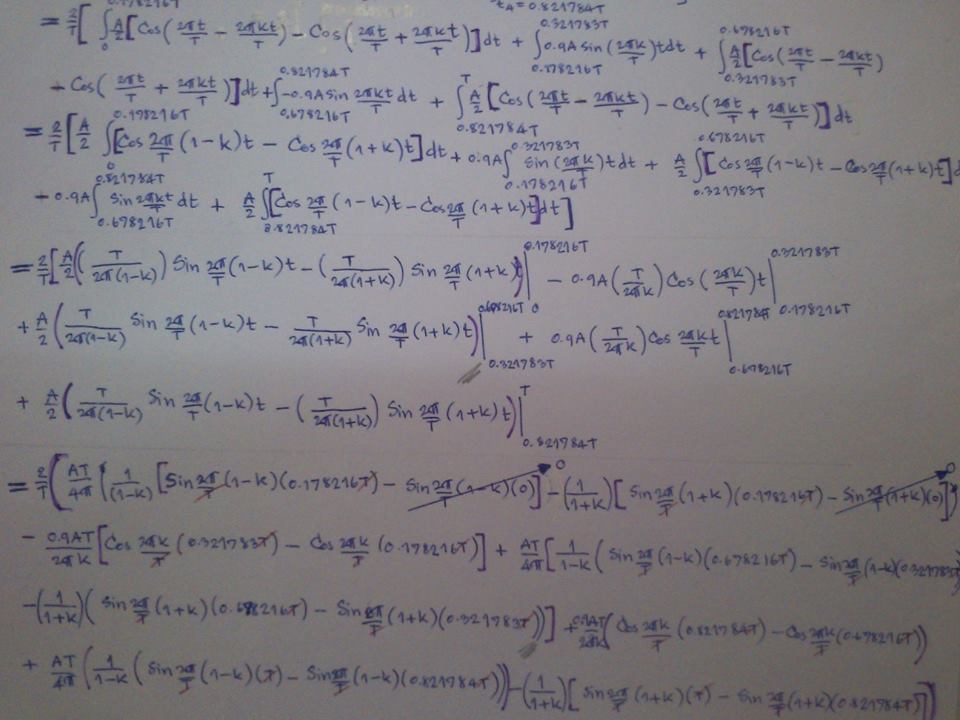 = 2/T [ ∫_0^0.178216T A/2 [Cos(2πt/T − 2πkt/T) − Cos(2πt/T + 2πkt/T)] dt + ∫_0.178216T^0.321783T 0.9A sin(2πk/T)t dt + ∫_0.321783T^0.678216T A/2 [Cos(2πt/T − 2πkt/T)
− Cos(2πt/T + 2πkt/T)] dt + ∫_0.678216T^0.821784T −0.9A sin 2πkt/T dt + ∫_0.821784T^T A/2 [Cos(2πt/T − 2πkt/T) − Cos(2πt/T + 2πkt/T)] dt
= 2/T [ A/2 ∫_0^0.178216T [Cos 2π/T (1−k)t − Cos 2π/T (1+k)t] dt + 0.9A ∫_0.178216T^0.321783T sin(2πk/T)t dt + A/2 ∫_0.321783T^0.678216T [Cos 2π/T (1−k)t − Cos 2π/T (1+k)t] d
− 0.9A ∫_0.678216T^0.821784T sin 2πkt/T dt + A/2 ∫_0.821784T^T [Cos 2π/T (1−k)t − Cos 2π/T (1+k)t] dt ]
= 2/T [ A/2 ( (T/2π(1−k)) Sin 2π/T (1−k)t − (T/2π(1+k)) Sin 2π/T (1+k)t ) |_0^0.178216T − 0.9A (T/2πk) Cos(2πk/T)t |_0.178216T^0.321783T
+ A/2 ( T/2π(1−k) Sin 2π/T (1−k)t − T/2π(1+k) Sin 2π/T (1+k)t ) |_0.321783T^0.678216T + 0.9A (T/2πk) Cos 2πk/T t |_0.678216T^0.821784T
+ A/2 ( T/2π(1−k) Sin 2π/T (1−k)t − (T/2π(1+k)) Sin 2π/T (1+k)t ) |_0.821784T^T
= 2/T ( AT/4π ( 1/(1−k) [Sin 2π/T (1−k)(0.178216T) − Sin 2π/T (1−k)(0)] → 0 − (1/1+k) [Sin 2π/T (1+k)(0.178216T) − Sin 2π/T (1+k)(0)] → 0 )
− 0.9AT/2πk [Cos 2πk/T (0.321783T) − Cos 2πk/T (0.178216T)] + AT/4π [ 1/1−k ( Sin 2π/T (1−k)(0.678216T) − Sin 2π/T (1−k)(0.321783T)
−(1/1+k)( Sin 2π/T (1+k)(0.678216T) − Sin 2π/T (1+k)(0.321783T) ) ] + 0.9AT/2πk ( Cos 2πk/T (0.821784T) − Cos 2πk/T (0.678216T) )
+ AT/4π ( 1/1−k ( Sin 2π/T (1−k)(T) − Sin 2π/T (1−k)(0.821784T) ) ) − (1/1+k) [ Sin 2π/T (1+k)(T) − Sin 2π/T (1+k)(0.821784T) ] ]